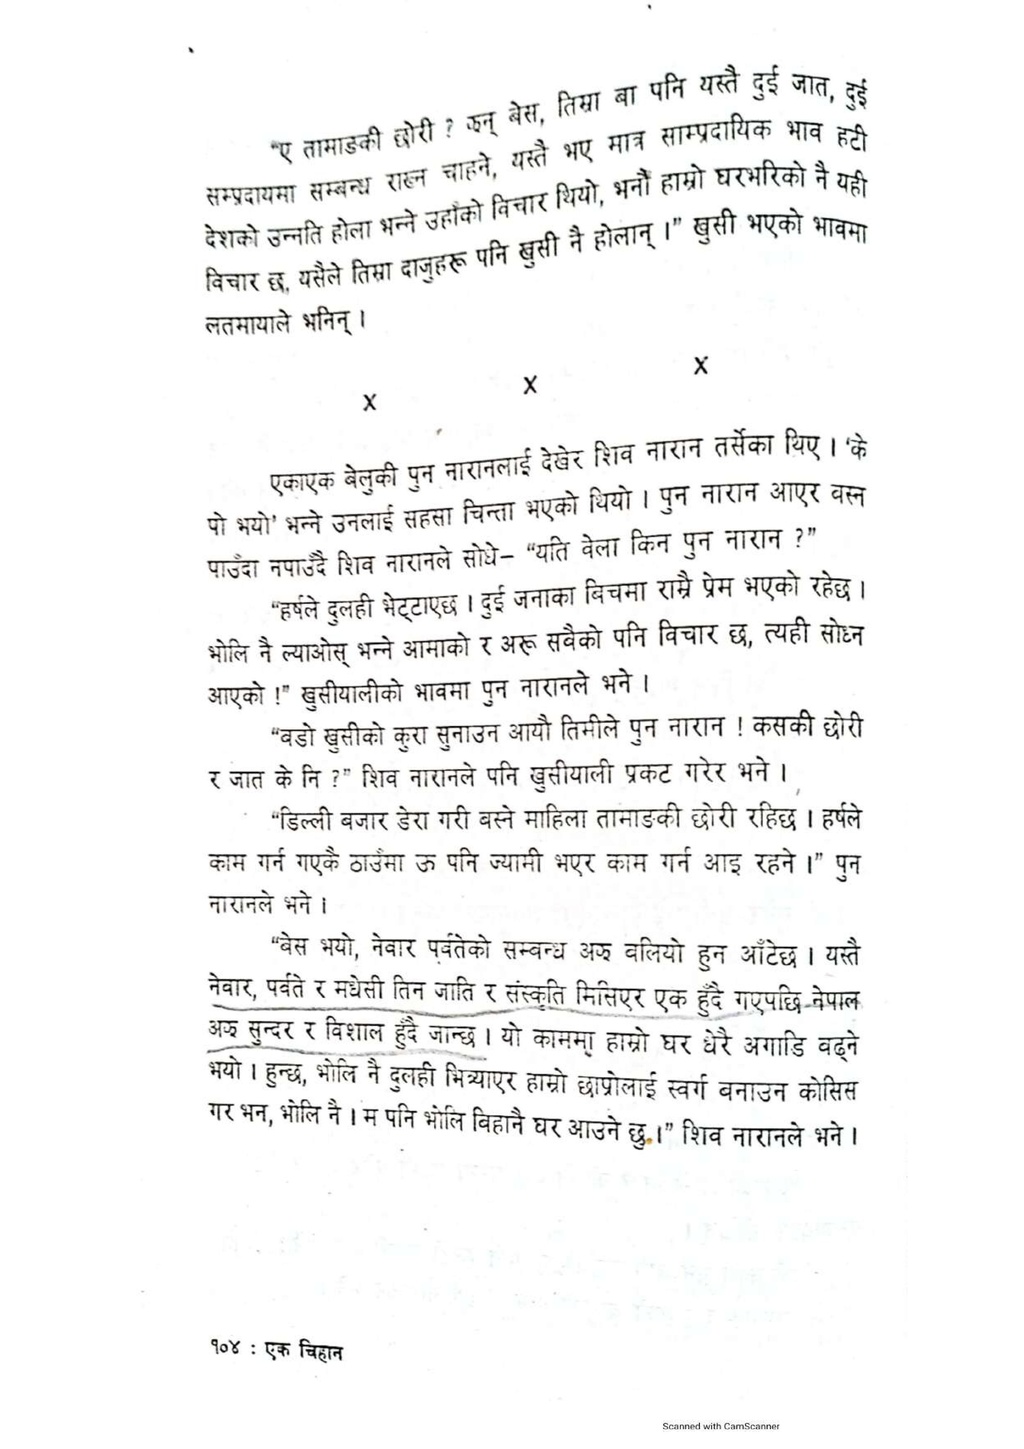 “ए तामाङकी छोरी ? झन् बेस, तिम्रा बा पनि यस्तै दुई जात, दुई
सम्प्रदायमा सम्बन्ध राख्न चाहने, यस्तै भए मात्र साम्प्रदायिक भाव हटी
देशको उन्नति होला भन्ने उहाँको विचार थियो, भनौं हाम्रो घरभरिको नै यही
विचार छ, यसैले तिम्रा दाजुहरू पनि खुसी नै होलान् ।” खुसी भएको भावमा
लतमायाले भनिन् ।
x x x
एकाएक बेलुकी पुन नारानलाई देखेर शिव नारान तर्सेका थिए । ‘के
पो भयो’ भन्ने उनलाई सहसा चिन्ता भएको थियो । पुन नारान आएर वस्न
पाउँदा नपाउँदै शिव नारानले सोधे– “यति वेला किन पुन नारान ?”
“हर्षले दुलही भेट्टाएछ । दुई जनाका बिचमा राम्रै प्रेम भएको रहेछ ।
भोलि नै ल्याओस् भन्ने आमाको र अरू सबैको पनि विचार छ, त्यही सोध्न
आएको !” खुसीयालीको भावमा पुन नारानले भने ।
“बडो खुसीको कुरा सुनाउन आयौ तिमीले पुन नारान ! कसकी छोरी
र जात के नि ?” शिव नारानले पनि खुसीयाली प्रकट गरेर भने ।
“डिल्ली बजार डेरा गरी वस्ने माहिला तामाङकी छोरी रहिछ । हर्षले
काम गर्न गएकै ठाउँमा ऊ पनि ज्यामी भएर काम गर्न आइ रहने ।” पुन
नारानले भने ।
“वेस भयो, नेवार पर्वतेको सम्बन्ध अझ वलियो हुन आँटेछ । यस्तै
नेवार, पर्वते र मधेसी तिन जाति र संस्कृति मिसिएर एक हुँदै गएपछि नेपाल
अझ सुन्दर र विशाल हुँदै जान्छ । यो काममा हाम्रो घर धेरै अगाडि वढ्ने
भयो । हुन्छ, भोलि नै दुलही भित्र्याएर हाम्रो छाप्रोलाई स्वर्ग वनाउन कोसिस
गर भन, भोलि नै । म पनि भोलि विहानै घर आउने छु ।” शिव नारानले भने ।
१०४ : एक चिहान
Scanned with CamScanner